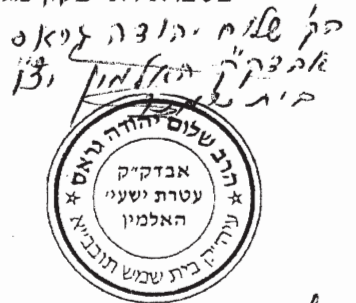 הק' שלום יהודה גראס
אבדק"ק האלמין יצ"ו
בית שמש
הרב שלום יהודה גראס
אבדק״ק
עטרת ישעי'
האלמין
עיה״ק בית שמש תובב״א